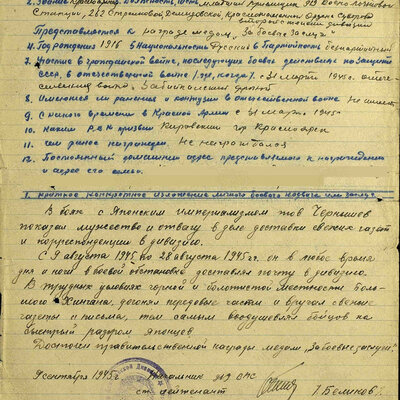 2. Звание Ефрейтор. Должность, часть младший приемщик 919 военно-почтовой
станции, 263 стрелковой
Представляется к награде медаль "За боевые заслуги"
4. Год рождения 1916 5. Национальность Русский 6. Партийность беспартийный
7. Участие в гражданской войне, последующих боевых действиях по защите
СССР, в отечественной войне (где, когда) с 31 марта 1945 г. отече-
ственная война. Забайкальский фронт
8. Имеются ли ранения и контузии в отечественной войне Не имеет
9. С какого времени в Красной Армии с 31 марта 1945
10. Каким РВК призван Кировским гор Красноярск
11. Чем ранее награжден. Не награждался
12. Постоянный домашний адрес представляемого к награждению
и адрес его семьи.
1. Краткое конкретное изложение личного боевого подвига или заслуг
В боях с Японским империализмом тов Чернышев
показал мужество и отвагу в деле доставки свежих газет
и корреспонденции в дивизию.
С 9 августа 1945 по 28 августа 1945 г. он в любое время
дня и ночи в боевой обстановке доставлял почту в дивизию.
В трудных условиях горной и болотистой местности Боль-
шого Хингана, догонял передовые части и вручал свежие
газеты и письма, тем самым воодушевлял бойцов на
быстрый разгром японцев.
Достоин правительственной награды медаль "За боевые заслуги".
9 сентября 1945 г. Начальник 919 ВПС
ст. лейтенант / Беликов /